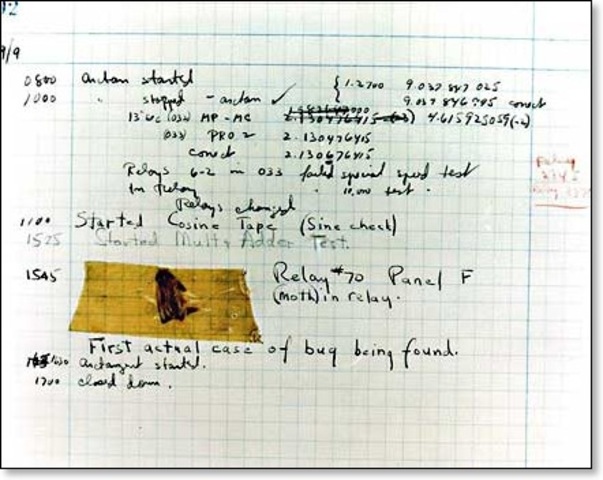 9/9
0800 antan started { 1.2700 9.037 847 025
1000 " stopped - antan ✓ 9.037 846 795 conect
13"uc (032) MP - MC 2.130476415 (-3) 4.615925059(-2)
(033) PRO 2 2.130476415
conect 2.130676415
Relays 6-2 in 033 failed special speed test
in relay " 11,000 test.
Relays changed
1100 Started Cosine Tape (Sine check)
1525 Started Mult+Adder Test.
1545 Relay #70 Panel F
(moth) in relay.
First actual case of bug being found.
1630 antangent started.
1700 closed down.